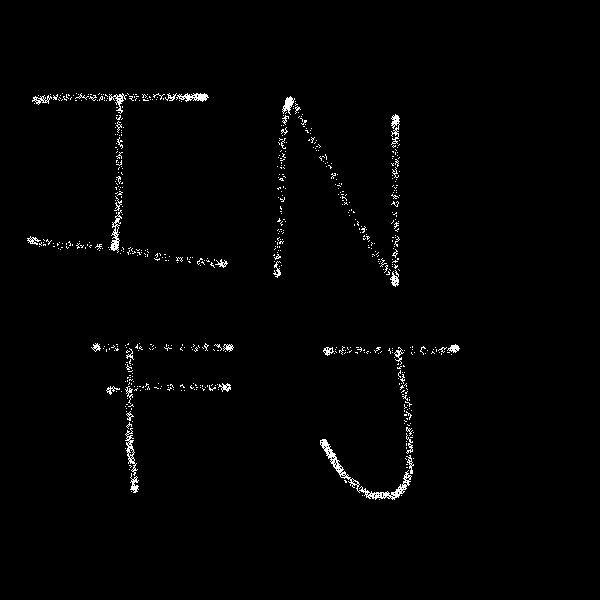 IN
FJ